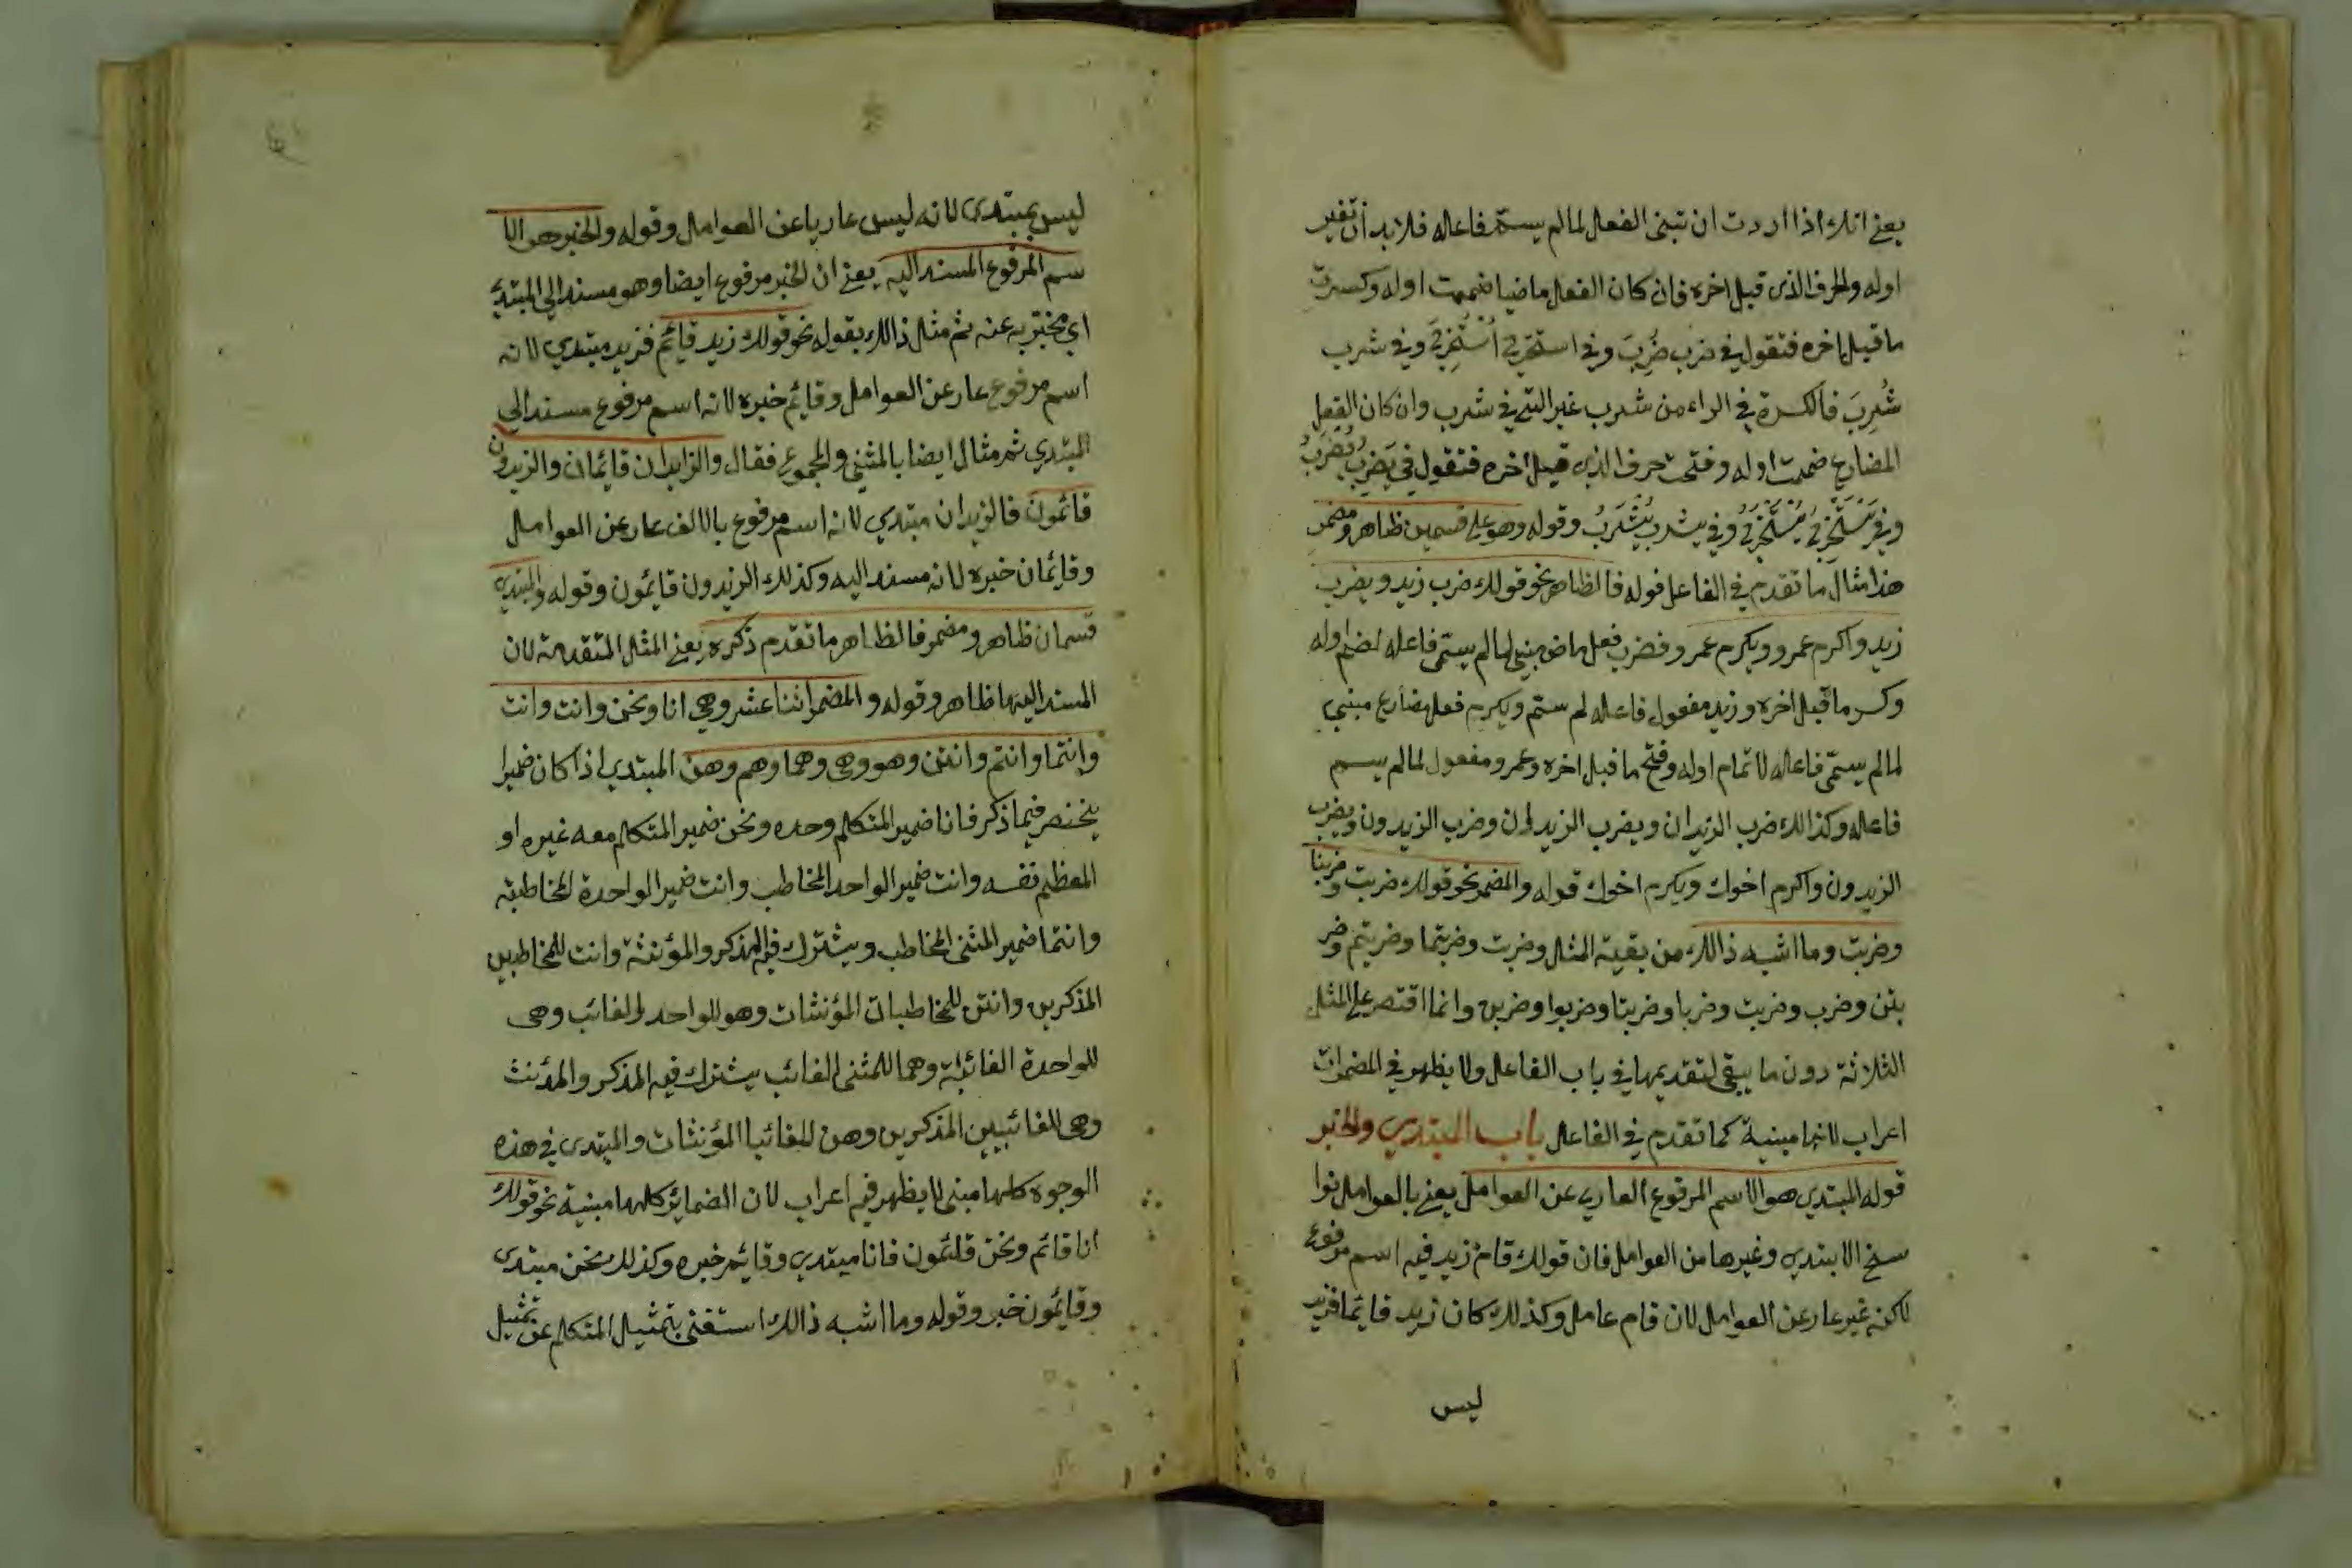 يعني انك اذا اردت ان تبنى الفعل لما لم يستم فاعاله فلا بد أن تغير
اوله والحرف الذى قبل اخره فان كان الفعل ماضيا ضممت اوله وكسرت
ما قبل اخره فتقول في ضرب ضُرِبَ وفي استخرج اُسْتُخْرِجَ وفي شرب
شُرِبَ فالكسرة في الراء من شرب غير التي في شرب وان كان الفعل
المضارع ضممت اوله وفتحت حرف الذي قبل اخره فتقول في يَضرِبُ يُضرَبُ
وفي يَسْتَخْرِجُ يُسْتَخْرَجُ وفي يشرب يُشْرَبُ وقوله وهو على قسمين ظاهر ومضمر
هذا مثال ما تقدم في الفاعل قوله فالظاهر نحو قولك ضرب زيد ويضرب
زيد واكرم عمرو ويكرم عمرو فضرب فعل ماض مبني لما لم يستمى فاعاله لضم اوله
وكسر ما قبل اخره وزيد مفعول فاعاله لم ستم ويكرم فعل مضارع مبني
لما لم يستمى فاعاله لاتمام اوله وفتح ما قبل اخره وعمرو مفعول لما لم يسم
فاعاله وكذالك ضرب الزيدان ويضرب الزيدان وضرب الزيدون ويضرب
الزيدون واكرم اخوك ويكرم اخوك قوله والمضمر نحو قولك ضربت وضربنا
وضربت وما اشبه ذالك من بقية المثل وضربت وضربتما وضربتم وضر
بتن وضرب وضربت وضربا وضربتا وضربوا وضربن وانما اقتصر على المثل
الثلاثة دون ما يبقى لتقديمها في باب الفاعل ولا يظهر في المضمرات
اعراب لانها مبنية كما تقدم في الفاعل باب المبتدي والخبر
قوله المبتدي هو الاسم المرفوع العاري عن العوامل يعني بالعوامل نوا
سخ الابتدي وغيرها من العوامل فان قولك قام زيد فيه اسم مرفوع
لاكنه غير عار عن العوامل لان قام عامل وكذلك كان زيد قايما فزيد
ليس
ليس بمبتدى لانه ليس عاريا عن العوامل وقوله والخبر هو الا
سم المرفوع المسند اليه يعني ان الخبر مرفوع ايضا وهو مسند الى المبتدئ
اي مخبر به عنه ثم مثل ذالك بقوله نحو قولك زيد قايم فزيد مبتدي لانه
اسم مرفوع عار عن العوامل وقايم خبره لانه اسم مرفوع مسند الى
المبتدي ثم مثال ايضا بالمثنى والمجموع فقال والزايدان قايمان والزيدون
قائمون فالزيدان مبتدي لانه اسم مرفوع بالالف عار عن العوامل
وقايمان خبره لانه مسند اليه وكذلك الزيدون قايمون وقوله والمبتدي
قسمان ظاهر ومضمر فالظاهر ما تقدم ذكره يعني المثل المتقدمة لان
المسند اليها ظاهر وقوله والمضمر اثنا عشر وهي انا ونحن وانت وانت
وانتما وانتم وانتن وهو وهي وهما وهم وهن المبتدي اذا كان ضميرا
ينحصر فيما ذكر فانا ضمير المتكلم وحده ونحن ضمير المتكلم معه غيره او
المعظم نفسه وانت ضمير الواحد المخاطب وانت ضمير الواحدة المخاطبة
وانتما ضمير المثنى المخاطب ويشترك فيه المذكر والمؤنثة وانت للمخاطبين
المذكرين وانتن للمخاطبات المؤنثات وهو للواحد الغائب وهى
للواحدة الغائبة وهما للمثنى الغائب يشترك فيه المذكر والمؤنث
وهى للغائبين المذكرين وهن للغائبا المؤنثات والمبتدى في هذه
الوجوه كلها مبنى لا يظهر فيه اعراب لان الضماير كلها مبنية نحو قولك
انا قائم ونحن قائمون فانا مبتدي وقايم خبره وكذلك نحن مبتدى
وقايمون خبر وقوله وما اشبه ذالك استغنى بتمثيل المتكلم عن تمثيل